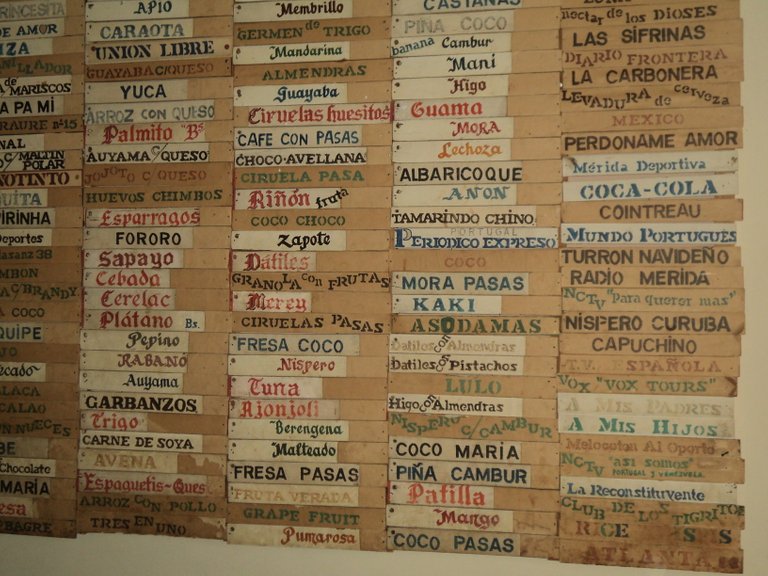 PRINCESITA
DE AMOR
ANILLADOR
de MARISCOS
A PA MI
C/MALTIN POLAR
Deportes
C/BRANDY
COCO
CON NUECES
Chocolate
MARIA
BAGRE
APIO
CARAOTA
UNION LIBRE
GUAYABA C/QUESO
YUCA
ARROZ CON QUESO
Palmito Bs
AUYAMA QUESO
JOJOTO C/QUESO
HUEVOS CHIMBOS
Esparragos
FORORO
Sapayo
Cebada
Cerelac
Plátano Bs.
Pepino
RABANO
Auyama
GARBANZOS
Trigo
CARNE DE SOYA
AVENA
Espaguetis-Ques
ARROZ CON POLLO
TRES EN UNO
Membrillo
GERMEN de TRIGO
Mandarina
ALMENDRAS
Guayaba
Ciruelas huesitos
CAFE CON PASAS
CHOCO-AVELLANA
CIRUELA PASA
Riñón fruta
COCO CHOCO
Zapote
Dátiles
GRANOLA con FRUTAS
Merey
CIRUELAS PASAS
FRESA COCO
Níspero
Tuna
Ajonjolí
Berengena
Malteado
FRESA PASAS
FRUTA VERADA
GRAPE FRUIT
Pumarosa
CASTAÑAS
PIÑA COCO
banana Cambur
Maní
Higo
Guama
MORA
Lechoza
ALBARICOQUE
ANON
TAMARINDO CHINO
PORTUGAL
PERIODICO EXPRESO
COCO
MORA PASAS
KAKI
ASODAMAS
Datiles con Almendras
Datiles con Pistachos
LULO
Higo con Almendras
NISPERO C/CAMBUR
COCO MARIA
PIÑA CAMBUR
Patilla
Mango
COCO PASAS
nectar de los DIOSES
LAS SIFRINAS
DIARIO FRONTERA
LA CARBONERA
LEVADURA de cerveza
MEXICO
PERDONAME AMOR
Mérida Deportiva
COCA-COLA
COINTREAU
MUNDO PORTUGUÉS
TURRON NAVIDEÑO
RADIO MERIDA
NCTV "para querer mas"
NÍSPERO CURUBA
CAPUCHINO
T.V. ESPAÑOLA
VOX "VOX TOURS"
A MIS PADRES
A MIS HIJOS
Melocoton Al Oporto
NCTV "asi somos" PORTUGAL Y VENEZUELA
La Reconstituyente
CLUB DE LOS TIGRITOS
ATLANTA